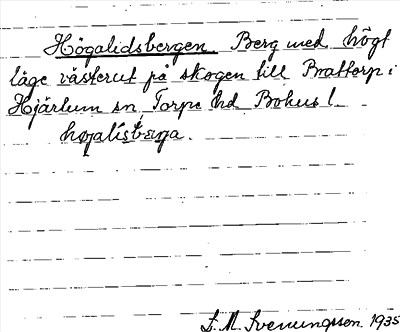 Högalidsbergen. Berg med högt
läge västerut på skogen till Brattorp i
Hjärtum sn, Torpe hd Bohus l.
høgalisbærga.
S. M. Svenungsson. 1935